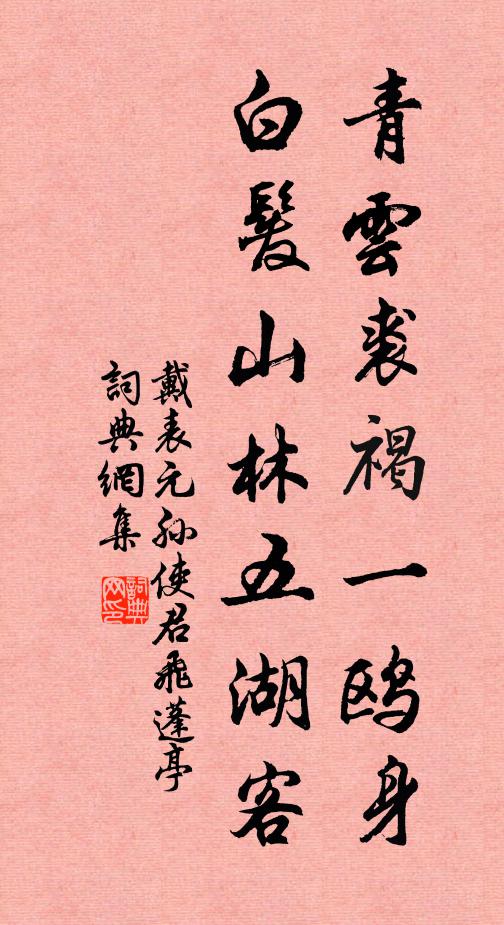 青雲裘褐一鸥身
白髮山林五湖客
戴表元孙使君飛蓬亭
詞典網集
詞典